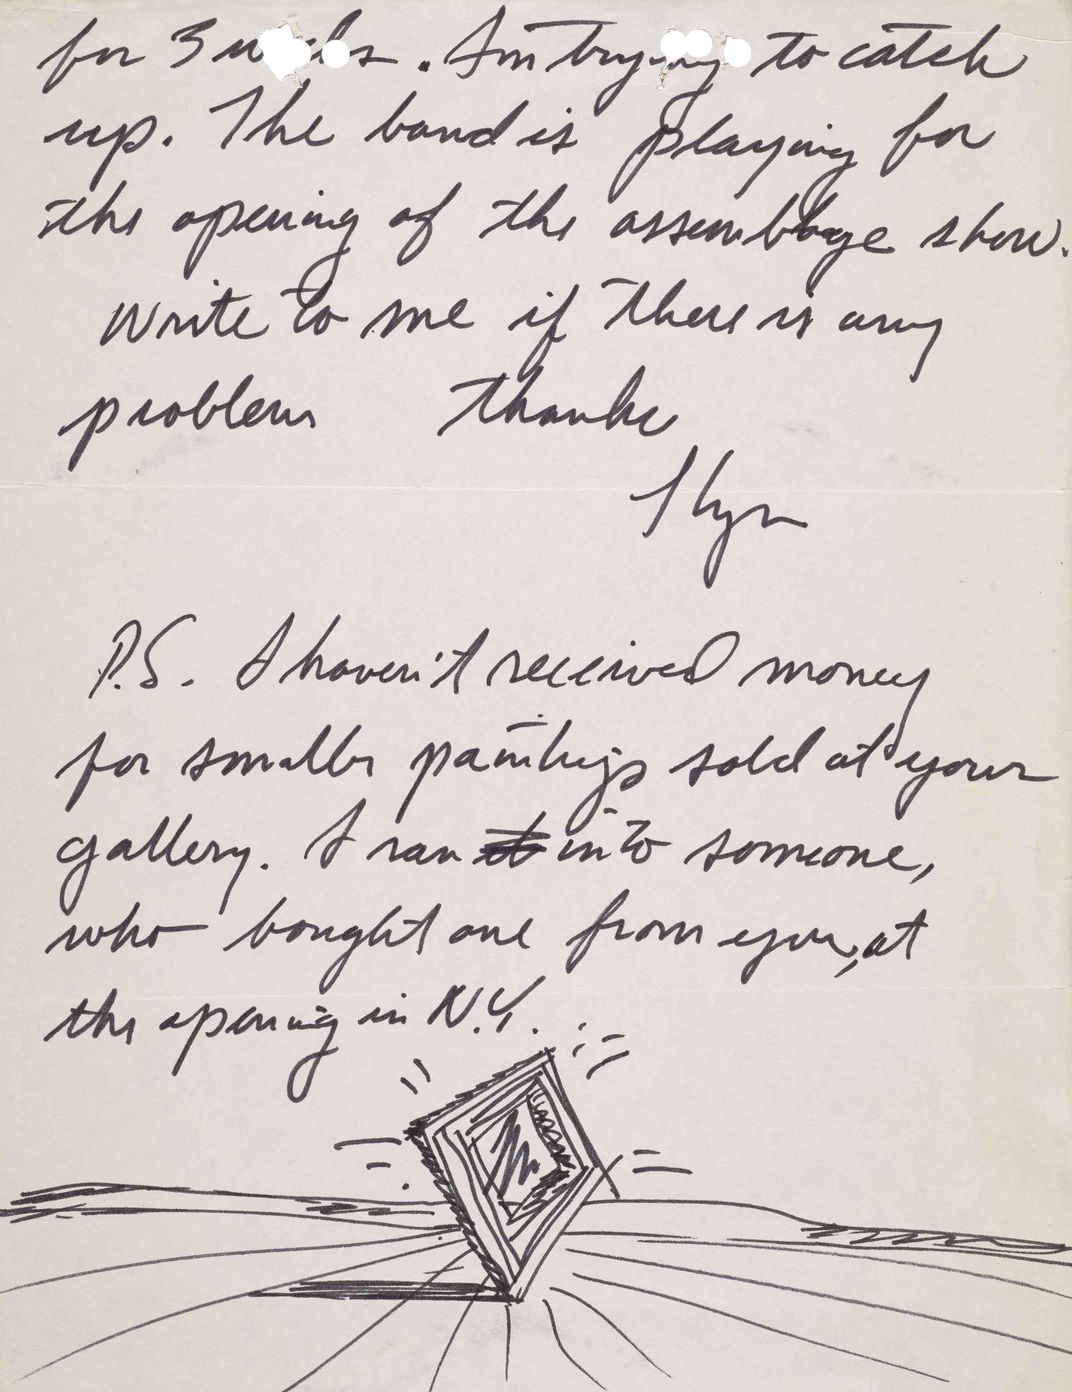 for 3 weeks. Am trying to catch
up. The band is playing for
the opening of the assemblage show.
Write to me if there is any
problem thanks
Llyn
P.S. I haven't received money
for smaller paintings sold at your
gallery. I ran into someone,
who bought one from you, at
the opening in N.Y.